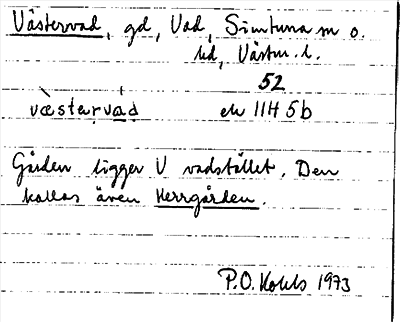 Västervad, gd, Vad, Simtuna sn o.
hd, Västm. l.
52
væstərvád ek 11H 5b
Gården ligger V vadstället. Den
kallas även Herrgården.
P.O. Kohls 1973